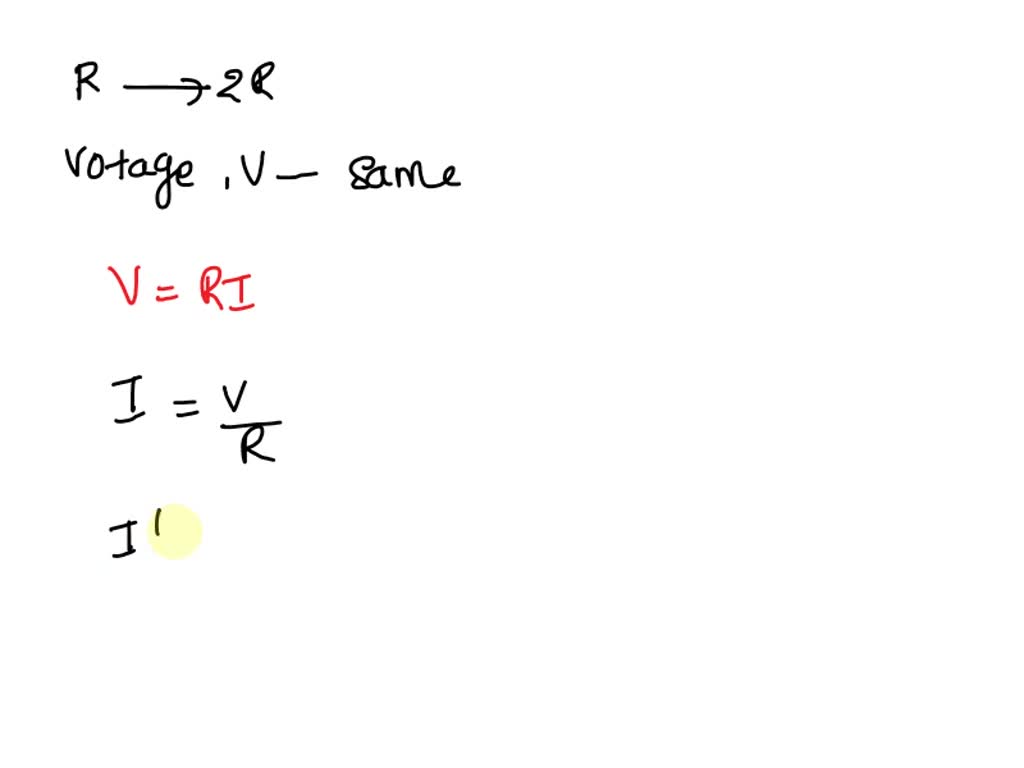 R → 2R
Votage, V — same
V = RI
I = V/R
I'